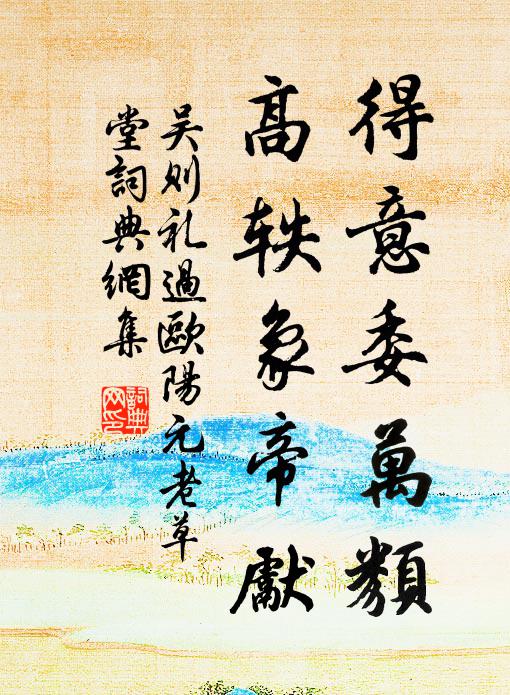 得意委萬類
高轶象帝獻
吴则礼過歐陽元老草
堂詞典網集
詞典
网印